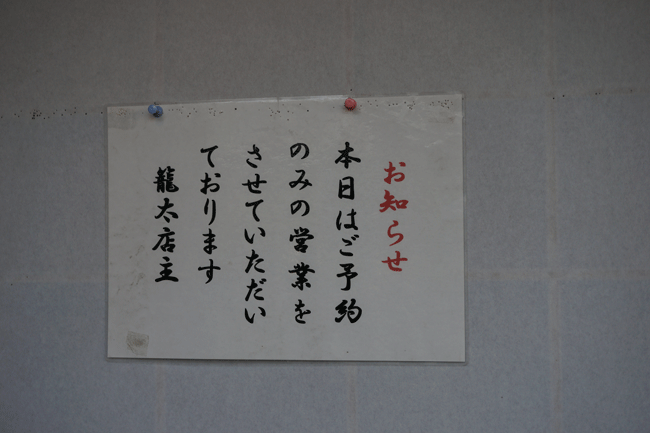 お知らせ
本日はご予約
のみの営業を
させていただい
ております
龍太店主